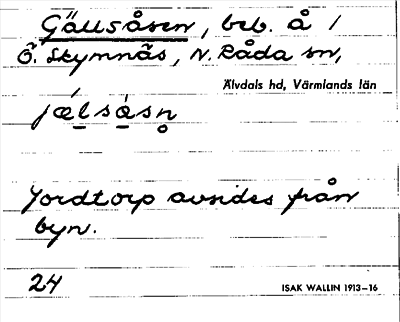 Gällsåsen, beb. å 1
Ö. Skymnäs, N. Råda sn,
Älvdals hd, Värmlands län
jæ̀l̠sås̠n̥
Jordtorp avsides från
byn.
24
ISAK WALLIN 1913–16